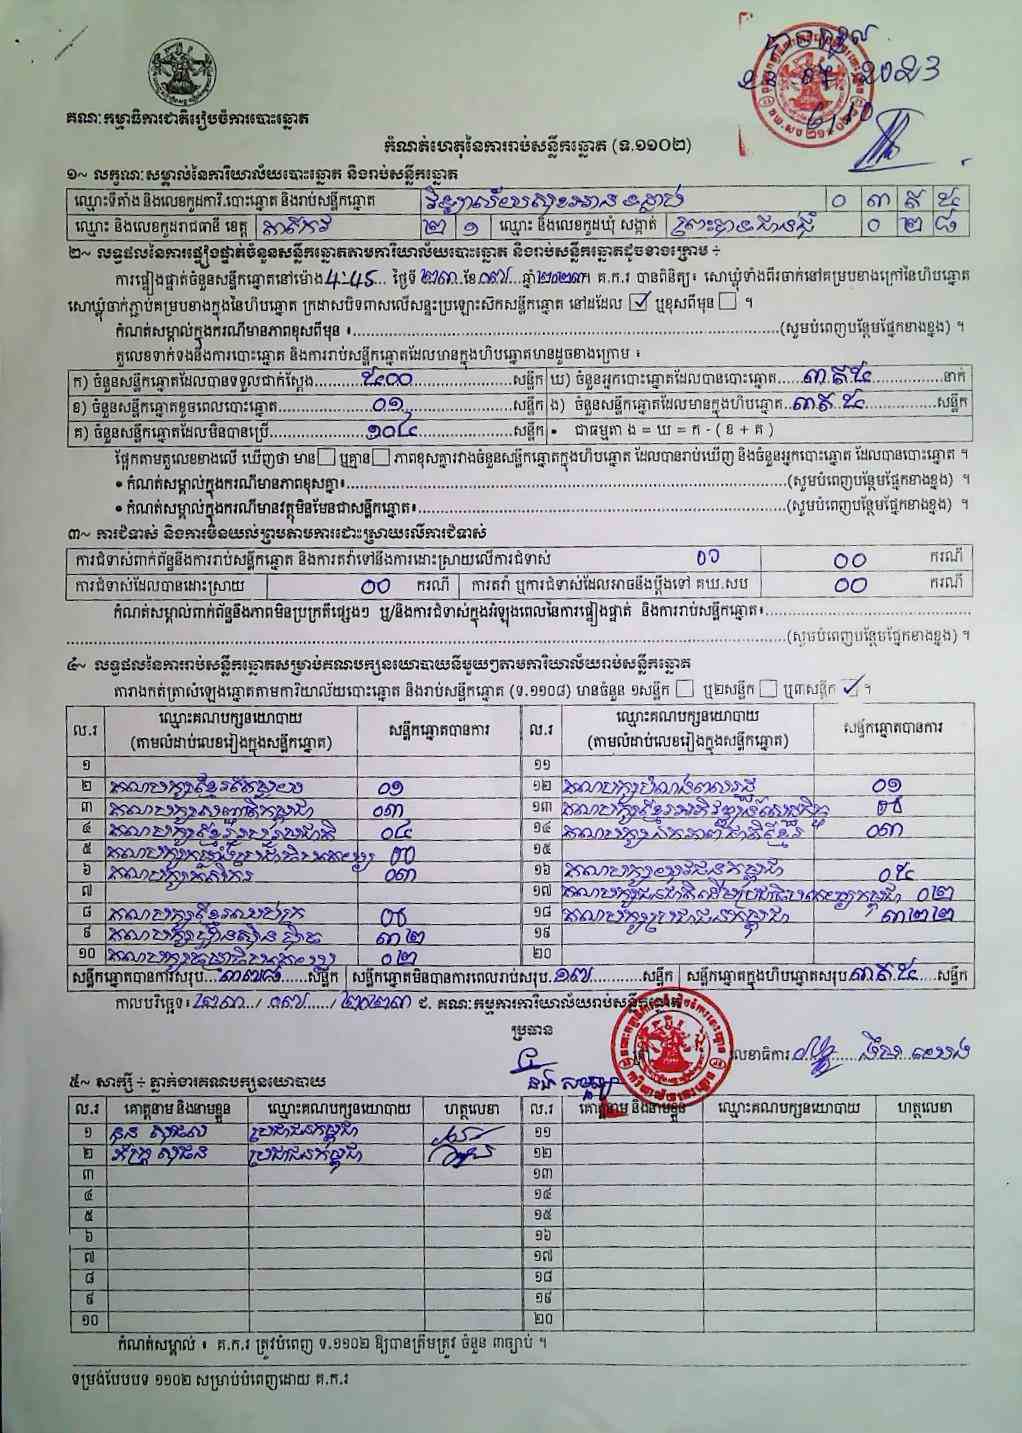 គណៈកម្មាធិការជាតិរៀបចំការបោះឆ្នោត
2023
កំណត់ហេតុនៃការរាប់សន្លឹកឆ្នោត (ទ.១១០២)
១~ លក្ខណៈសម្គាល់នៃការិយាល័យបោះឆ្នោត និងរាប់សន្លឹកឆ្នោត
ឈ្មោះទីតាំង និងលេខកូដការិ.បោះឆ្នោត និងរាប់សន្លឹកឆ្នោត ០ ៣ ៩ ៥
ឈ្មោះ និងលេខកូដរាជធានី ខេត្ត តាកែវ ២ ១ ឈ្មោះ និងលេខកូដឃុំ សង្កាត់ ០ ២ ៨
២~ លទ្ធផលនៃការផ្ទៀងផ្ទាត់ចំនួនសន្លឹកឆ្នោតតាមការិយាល័យបោះឆ្នោត និងរាប់សន្លឹកឆ្នោតដូចខាងក្រោម ÷
ការផ្ទៀងផ្ទាត់ចំនួនសន្លឹកឆ្នោតនៅម៉ោង 4:45 ថ្ងៃទី ២៣ ខែ ០៧ ឆ្នាំ ២០២៣ គ.ក.រ បានពិនិត្យ៖ សោឃ្លុំទាំងពីរចាក់នៅគម្របខាងក្រៅនៃហិបឆ្នោត
សោឃ្លុំចាក់ភ្ជាប់គម្របខាងក្នុងនៃហិបឆ្នោត ក្រដាសបិទពាសលើសន្ទះប្រឡោះសឹកសន្លឹកឆ្នោត នៅដដែល ☑ ឬខុសពីមុន ☐ ។
កំណត់សម្គាល់ក្នុងករណីមានភាពខុសពីមុន ៖ (សូមបំពេញបន្ថែមផ្នែកខាងខ្នង) ។
តួលេខទាក់ទងនឹងការបោះឆ្នោត និងការរាប់សន្លឹកឆ្នោតដែលមានក្នុងហិបឆ្នោតមានដូចខាងក្រោម ៖
ក) ចំនួនសន្លឹកឆ្នោតដែលបានទទួលជាក់ស្តែង ៥០០ សន្លឹក ឃ) ចំនួនអ្នកបោះឆ្នោតដែលបានបោះឆ្នោត ៣៩៥ នាក់
ខ) ចំនួនសន្លឹកឆ្នោតខូចពេលបោះឆ្នោត ០១ សន្លឹក ង) ចំនួនសន្លឹកឆ្នោតដែលមានក្នុងហិបឆ្នោត ៣៩៥ សន្លឹក
គ) ចំនួនសន្លឹកឆ្នោតដែលមិនបានប្រើ ១០៤ សន្លឹក • ជាធម្មតា ង = ឃ = ក - ( ខ + គ )
ផ្អែកតាមតួលេខខាងលើ ឃើញថា មាន ☐ ឬគ្មាន ☐ ភាពខុសគ្នារវាងចំនួនសន្លឹកឆ្នោតក្នុងហិបឆ្នោត ដែលបានរាប់ឃើញ និងចំនួនអ្នកបោះឆ្នោត ដែលបានបោះឆ្នោត ។
• កំណត់សម្គាល់ក្នុងករណីមានភាពខុសគ្នា៖ (សូមបំពេញបន្ថែមផ្នែកខាងខ្នង) ។
• កំណត់សម្គាល់ក្នុងករណីមានវត្ថុមិនមែនជាសន្លឹកឆ្នោត៖ (សូមបំពេញបន្ថែមផ្នែកខាងខ្នង) ។
៣~ ការជំទាស់ និងការមិនយល់ព្រមតាមការដោះស្រាយលើការជំទាស់
ការជំទាស់ពាក់ព័ន្ធនឹងការរាប់សន្លឹកឆ្នោត និងការតវ៉ាទៅនឹងការដោះស្រាយលើការជំទាស់ ០០ ០០ ករណី
ការជំទាស់ដែលបានដោះស្រាយ ០០ ករណី ការតវ៉ា ឬការជំទាស់ដែលអាចនឹងប្តឹងទៅ គឃ.សប ០០ ករណី
កំណត់សម្គាល់ពាក់ព័ន្ធនឹងភាពមិនប្រក្រតីផ្សេងៗ ឬ/និងការជំទាស់ក្នុងអំឡុងពេលនៃការផ្ទៀងផ្ទាត់ និងការរាប់សន្លឹកឆ្នោត៖
(សូមបំពេញបន្ថែមផ្នែកខាងខ្នង) ។
៤~ លទ្ធផលនៃការរាប់សន្លឹកឆ្នោតសម្រាប់គណបក្សនយោបាយនីមួយៗតាមការិយាល័យរាប់សន្លឹកឆ្នោត
តារាងកត់ត្រាសំឡេងឆ្នោតតាមការិយាល័យបោះឆ្នោត និងរាប់សន្លឹកឆ្នោត (ទ.១១០៨) មានចំនួន ១សន្លឹក ☐ ឬ២សន្លឹក ☐ ឬ៣សន្លឹក ☑ ។
ល.រ ឈ្មោះគណបក្សនយោបាយ (តាមលំដាប់លេខរៀងក្នុងសន្លឹកឆ្នោត) សន្លឹកឆ្នោតបានការ ល.រ ឈ្មោះគណបក្សនយោបាយ (តាមលំដាប់លេខរៀងក្នុងសន្លឹកឆ្នោត) សន្លឹកឆ្នោតបានការ
១ ១១
២ ០១ ១២ ០១
៣ គណបក្សសញ្ជាតិកម្ពុជា ០៣ ១៣ គណបក្សខ្មែរអភិវឌ្ឍន៍សេដ្ឋកិច្ច ០០
៤ គណបក្សខ្មែររួបរួមជាតិ ០៤ ១៤ គណបក្សឯកភាពជាតិខ្មែរ ០៣
៥ គណបក្សកម្លាំងប្រជាធិបតេយ្យ ០០ ១៥
៦ គណបក្សកសិករ ០៣ ១៦ គណបក្សយុវជនកម្ពុជា ០៥
៧ ១៧ គណបក្សជនជាតិដើមប្រជាធិបតេយ្យកម្ពុជា ០២
៨ គណបក្សខ្មែរឈប់ក្រ ០០ ១៨ គណបក្សប្រជាជនកម្ពុជា ៣២២
៩ គណបក្សហ្វ៊ុនស៊ិនប៉ិច ៣២ ១៩
១០ គណបក្សធម្មាធិបតេយ្យ ០២ ២០
សន្លឹកឆ្នោតបានការសរុប ៣៧៨ សន្លឹក សន្លឹកឆ្នោតមិនបានការពេលរាប់សរុប ១៧ សន្លឹក សន្លឹកឆ្នោតក្នុងហិបឆ្នោតសរុប ៣៩៥ សន្លឹក
កាលបរិច្ឆេទ៖ ២៣ / ០៧ / ២០២៣ ជ. គណៈកម្មការការិយាល័យរាប់សន្លឹកឆ្នោត
ប្រធាន
លេខាធិការ
៥~ សាក្សី ÷ ភ្នាក់ងារគណបក្សនយោបាយ
ល.រ គោត្តនាម និងនាមខ្លួន ឈ្មោះគណបក្សនយោបាយ ហត្ថលេខា ល.រ គោត្តនាម និងនាមខ្លួន ឈ្មោះគណបក្សនយោបាយ ហត្ថលេខា
១ ប្រជាជនកម្ពុជា ១១
២ ប្រជាជនកម្ពុជា ១២
៣ ១៣
៤ ១៤
៥ ១៥
៦ ១៦
៧ ១៧
៨ ១៨
៩ ១៩
១០ ២០
កំណត់សម្គាល់ ៖ គ.ក.រ ត្រូវបំពេញ ទ.១១០២ ឱ្យបានត្រឹមត្រូវ ចំនួន ៣ច្បាប់ ។
ទម្រង់បែបបទ ១១០២ សម្រាប់បំពេញដោយ គ.ក.រ